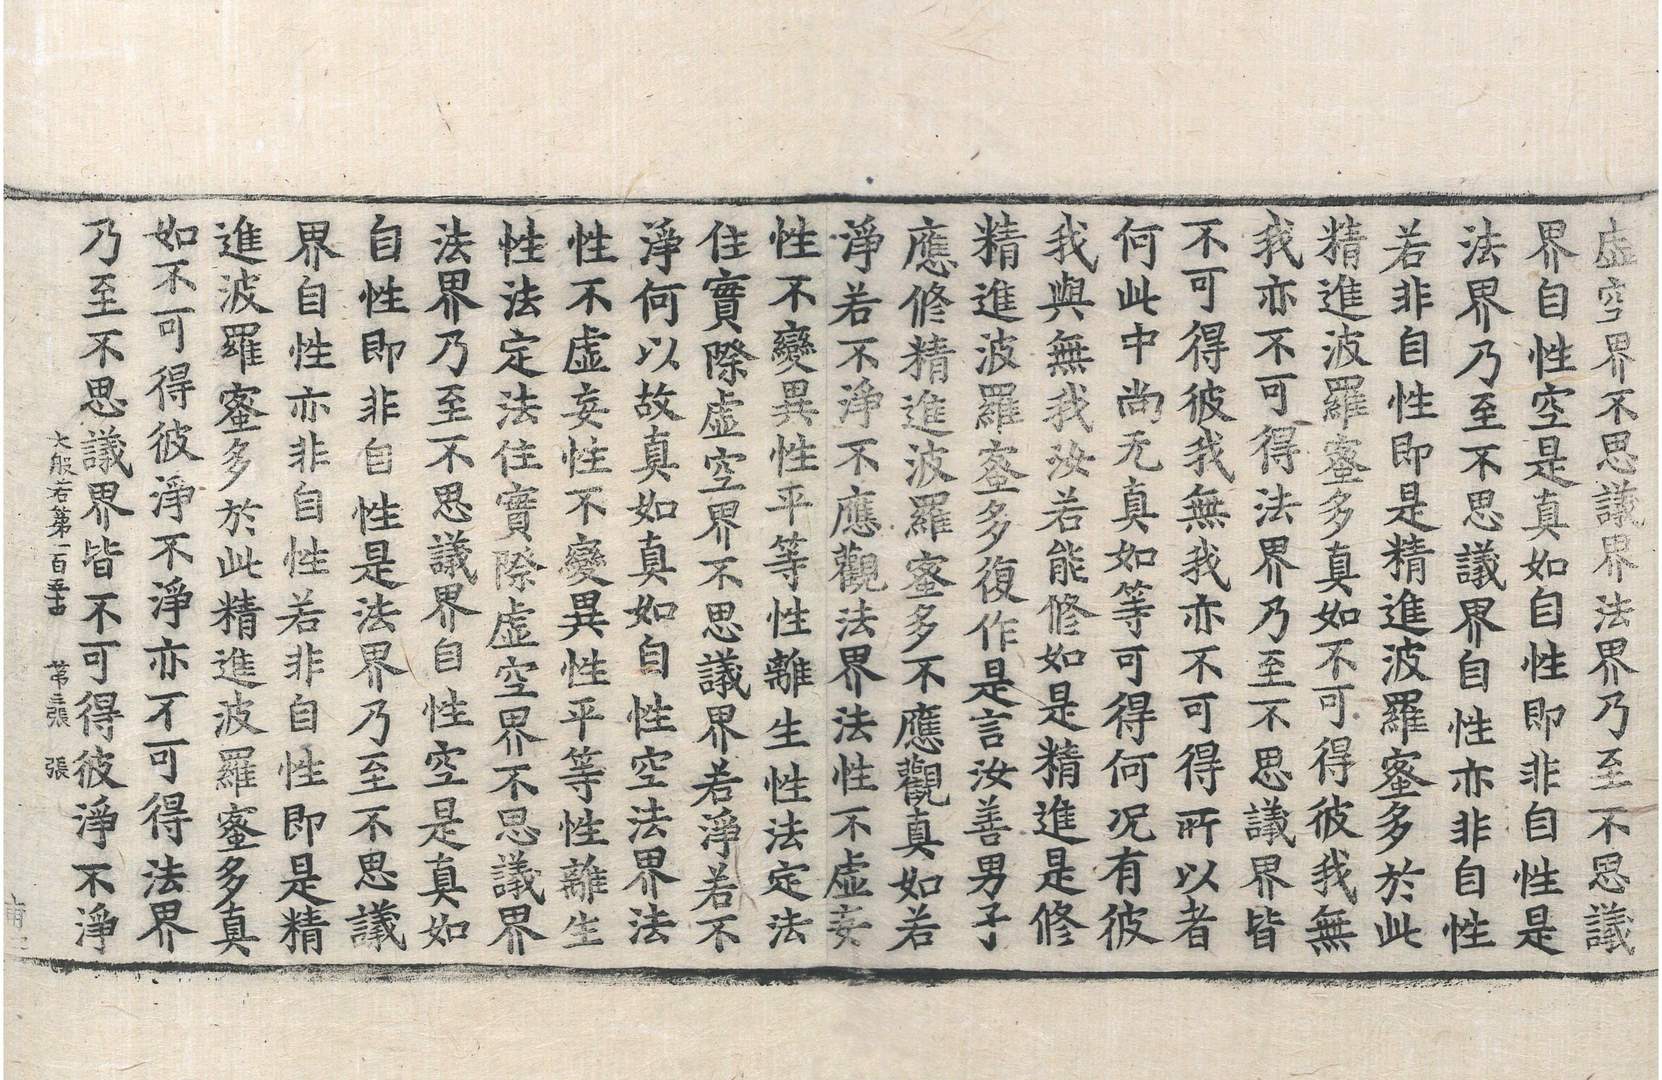 虛空界不思議界法界乃至不思議
界自性空是真如自性即非自性是
法界乃至不思議界自性亦非自性
若非自性即是精進波羅蜜多於此
精進波羅蜜多真如不可得彼我無
我亦不可得法界乃至不思議界皆
不可得彼我無我亦不可得所以者
何此中尚无真如等可得何況有彼
我與無我汝若能修如是精進是修
精進波羅蜜多復作是言汝善男子
應修精進波羅蜜多不應觀真如若
淨若不淨不應觀法界法性不虛妄
性不變異性平等性離生性法定法
住實際虛空界不思議界若淨若不
淨何以故真如真如自性空法界法
性不虛妄性不變異性平等性離生
性法定法住實際虛空界不思議界
法界乃至不思議界自性空是真如
自性即非自性是法界乃至不思議
界自性亦非自性若非自性即是精
進波羅蜜多於此精進波羅蜜多真
如不可得彼淨不淨亦不可得法界
乃至不思議界皆不可得彼淨不淨
大般若第一百五 第三張 張